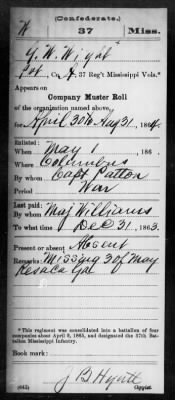 (Confederate.)
W 37 Miss.
G. W. Wight
Pvt., Co. , 37 Reg't Mississippi Vols.*
Appears on
Company Muster Roll
of the organization named above,
for April 30 to Aug 31, 1864.
Enlisted:
When May 1, 186
Where Columbus
By whom Capt Patton
Period War
Last paid:
By whom Maj Williams
To what time Dec 31, 1863.
Present or absent Absent
Remarks: Missing 3 of May
Resaca Ga
*This regiment was consolidated into a battalion of four
companies about April 9, 1865, and designated the 37th Bat-
talion Mississippi Infantry.
Book mark:
J B Hyatt
(642) Copyist.